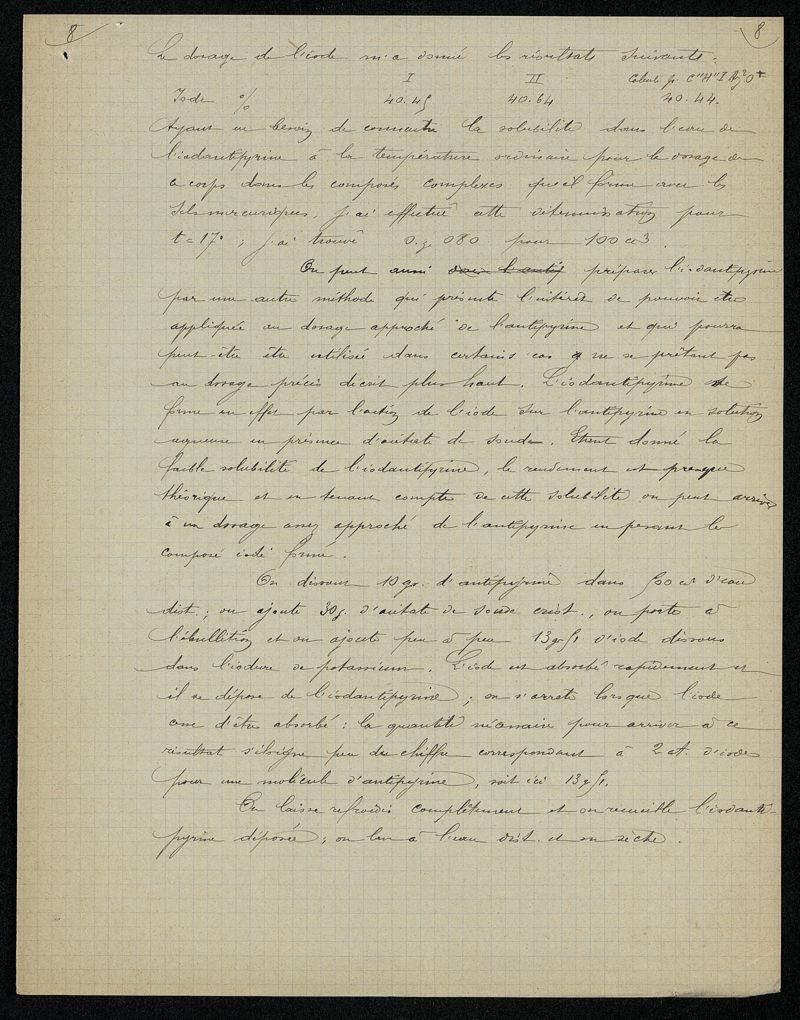 8 8
Le dosage de l'iode m'a donné les résultats suivants.
I II Calculé pr. C"H"I Az²O
Iode % 40.45 40.64 40.44.
Ayant eu besoin de connaitre la solubilité dans l'eau de
l'iodantipyrine à la température ordinaire pour le dosage de
ce corps dans les composés complexes qu'il forme avec les
sels mercuriques, j'ai effectué cette détermination pour
t = 17° ; j'ai trouvé 0.g 080 pour 100 cc3.
On peut aussi préparer l'iodantipyrine
par une autre méthode qui présente l'intérêt de pouvoir etre
appliquée au dosage approché de l'antipyrine et qui pourra
peut-être être utilisée dans certains cas ne se prêtant pas
au dosage précis décrit plus haut. L'iodantipyrine se
forme en effet par l'action de l'iode sur l'antipyrine en solution
aqueuse en présence d'acétate de soude. Etant donné la
faible solubilité de l'iodantipyrine, le rendement est presque
théorique et en tenant compte de cette solubilité on peut arriver
à un dosage assez approché de l'antipyrine en pesant le
composé iodé formé.
On dissout 10 gr. d'antipyrine dans 500 cc d'eau
dist. ; on ajoute 30g. d'acétate de soude crist., on porte à
l'ébullition et on ajoute peu à peu 13gr51 d'iode dissous
dans l'iodure de potassium. L'iode est absorbé rapidement et
il se dépose de l'iodantipyrine ; on s'arrete lorsque l'iode
cesse d'être absorbé : la quantité nécessaire pour arriver à ce
résultat s'éloigne peu du chiffre correspondant à 2 at. d'iode
pour une molécule d'antipyrine, soit ici 13g51.
On laisse refroidir complètement et on recueille l'iodanti-
pyrine déposée ; on lave à l'eau dist. et on sèche.